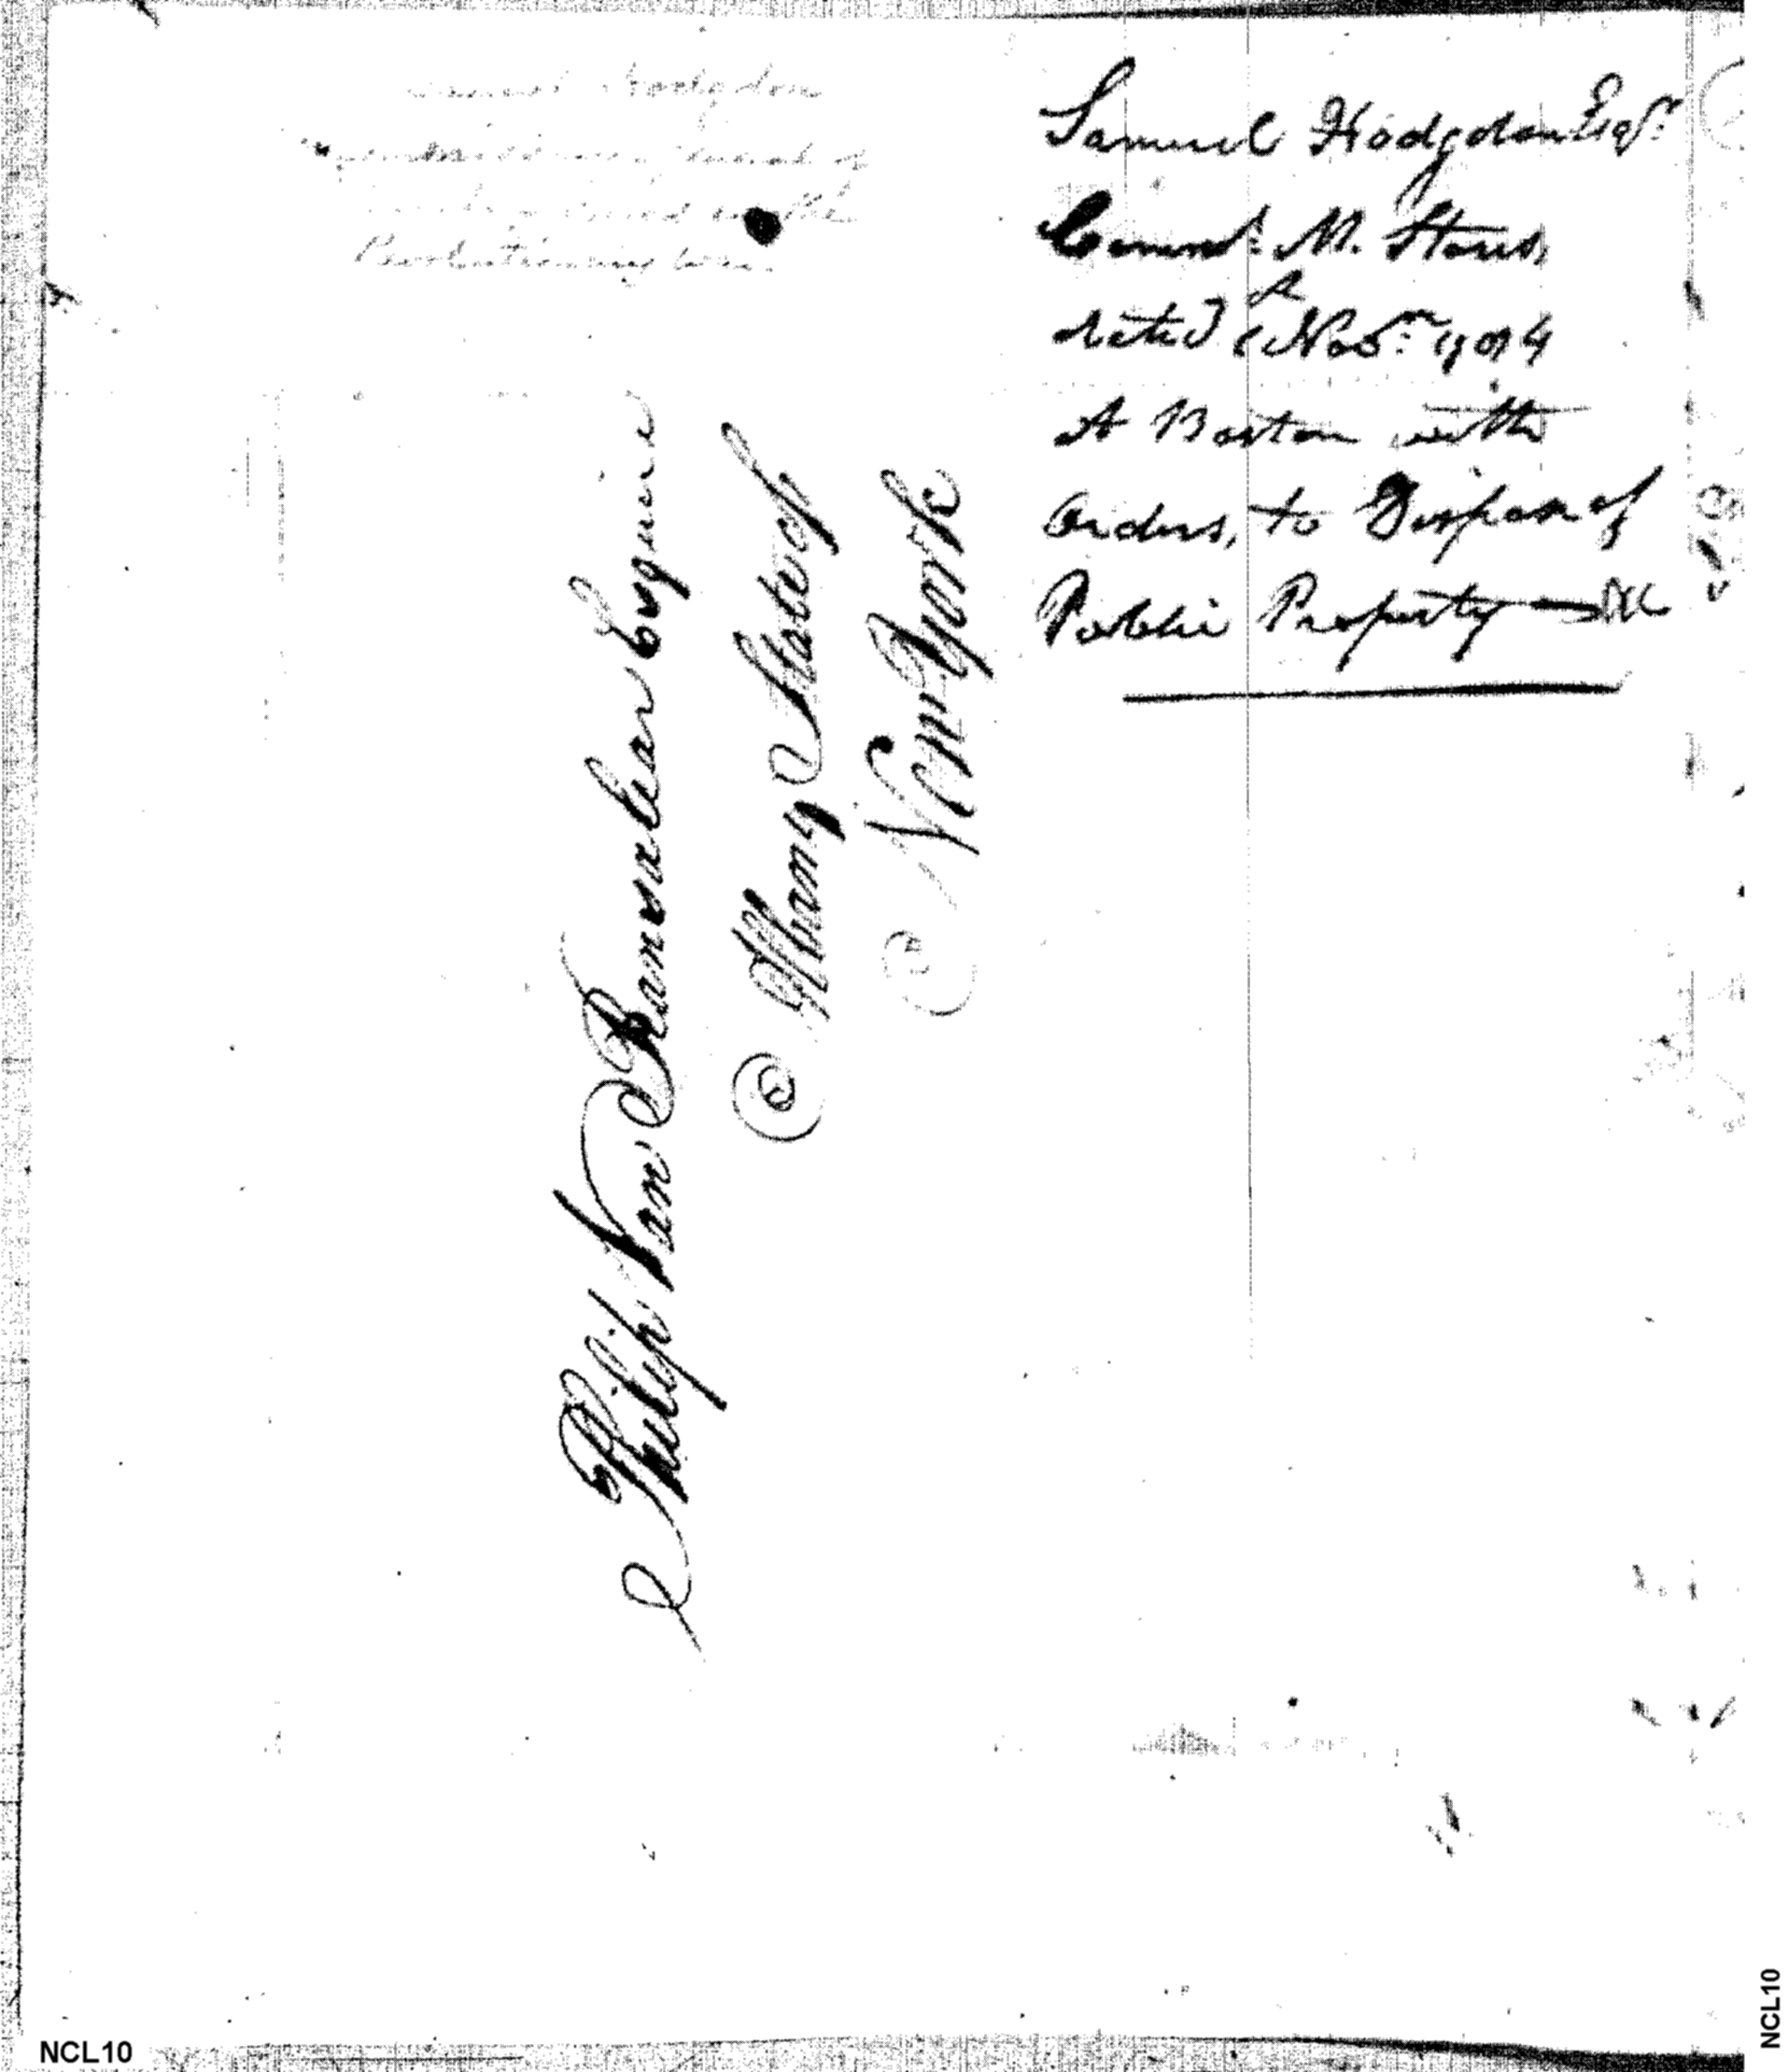 Samuel Hodgdon
General of
in the
Revolutionary War.
Samuel Hodgdon Esqr.
Comd. M. Stores,
dated Novr.
at Boston with
Orders, to Dispose of
Public Property &c
Philip Van Rannsalear Esquire
Albany State of
New York
NCL10
NCL10